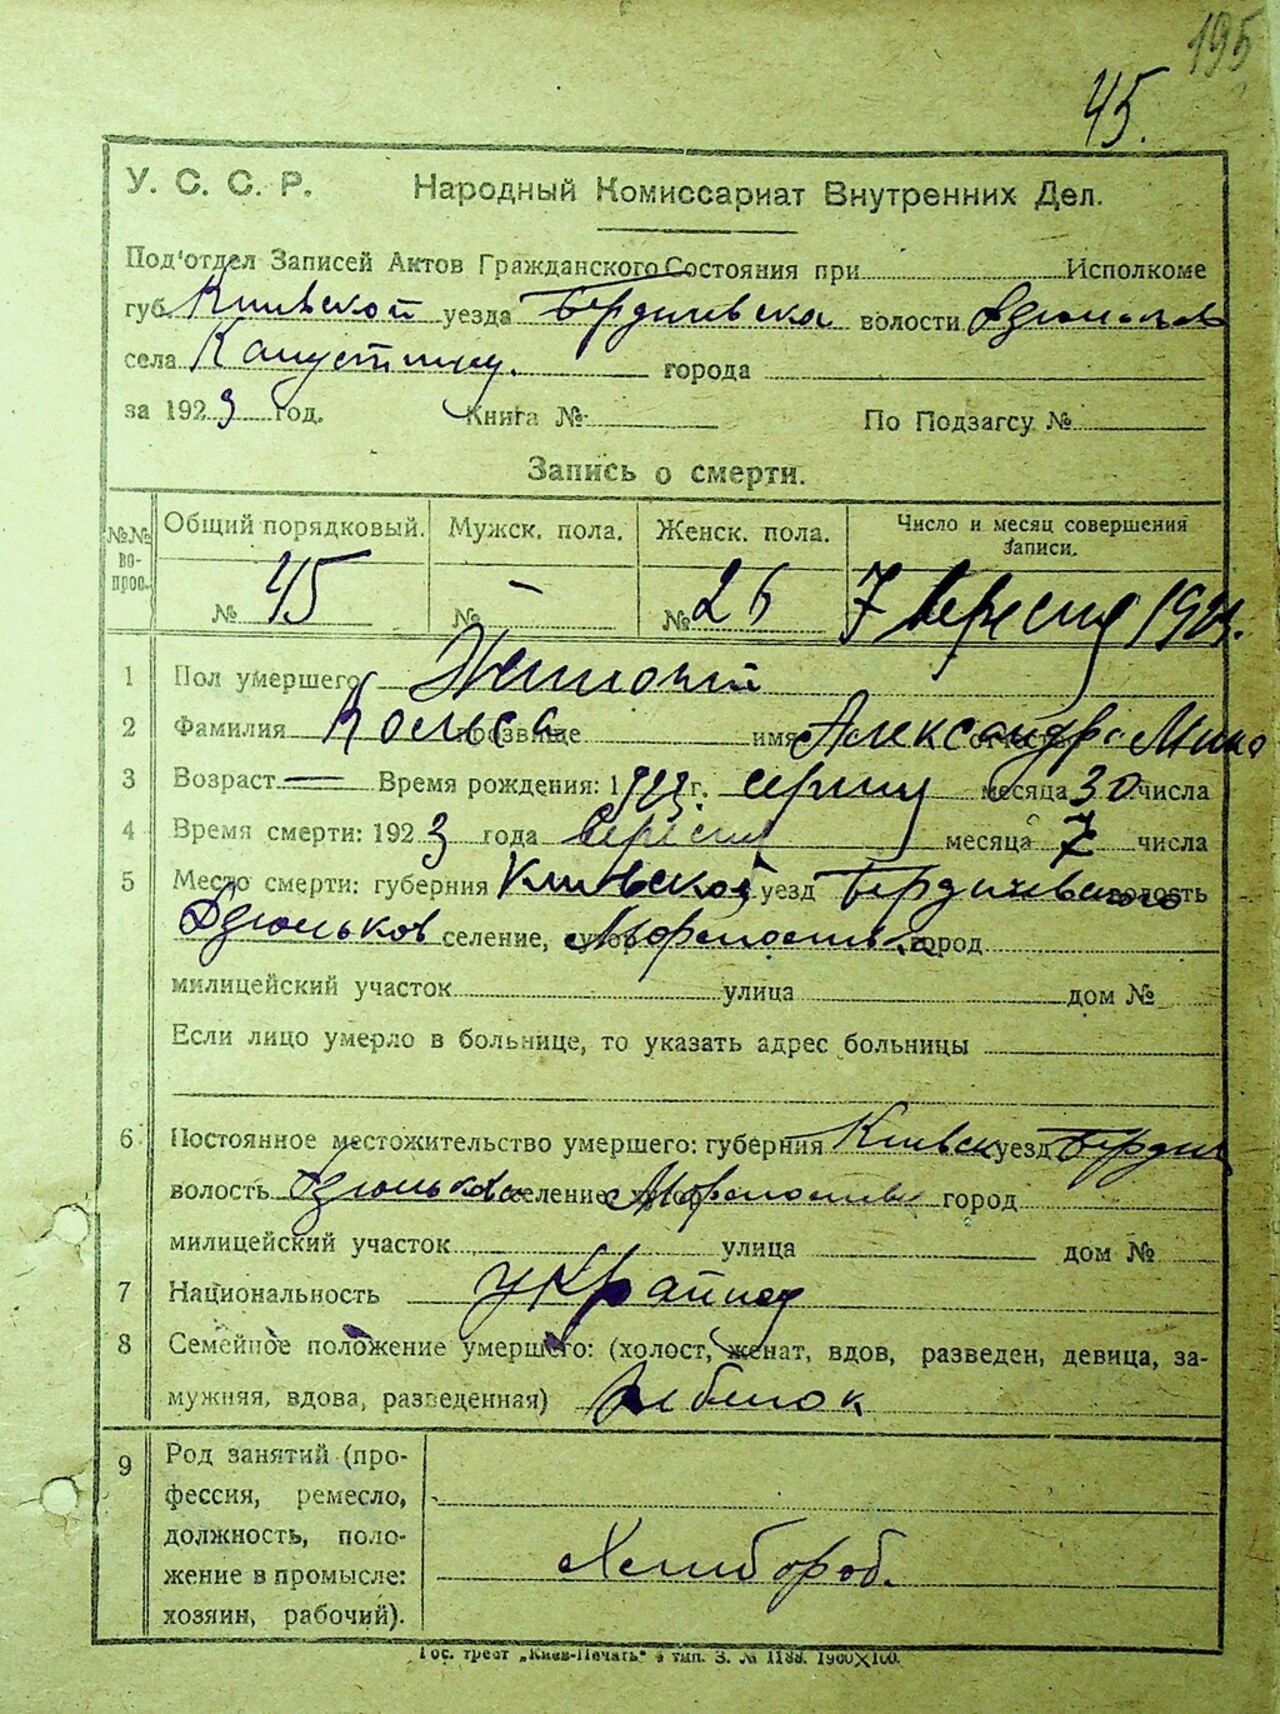 195
45.
У. С. С. Р. Народный Комиссариат Внутренних Дел.
Под'отдел Записей Актов Гражданского Состояния при Исполкоме
губ. Киивской уезда Бердичевска волости
села Капустинцы. города
за 1923 год. Книга № По Подзагсу №
Запись о смерти.
№№ вопрос. Общий порядковый. Мужск. пола. Женск. пола. Число и месяц совершения записи.
№ 45 № — № 26 7 вересня 1923.
1 Пол умершего
2 Фамилия прозвище имя Александра отчество
3 Возраст — Время рождения: 1923 г. серпня месяца 30 числа
4 Время смерти: 1923 года вересня месяца 7 числа
5 Место смерти: губерния Киивской уезд Бердичевского волость
Дзюньков селение, хутор город
милицейский участок улица дом №
Если лицо умерло в больнице, то указать адрес больницы
6 Постоянное местожительство умершего: губерния Киивск уезд Бердич
волость селение, хутор город
милицейский участок улица дом №
7 Национальность
8 Семейное положение умершего: (холост, женат, вдов, разведен, девица, за-
мужняя, вдова, разведенная) ребенок
9 Род занятий (про-
фессия, ремесло,
должность, поло-
жение в промысле: Хлибороб.
хозяин, рабочий).
Гос. трест „Киев-Печать" тип. 3. № 1188. 1900X100.